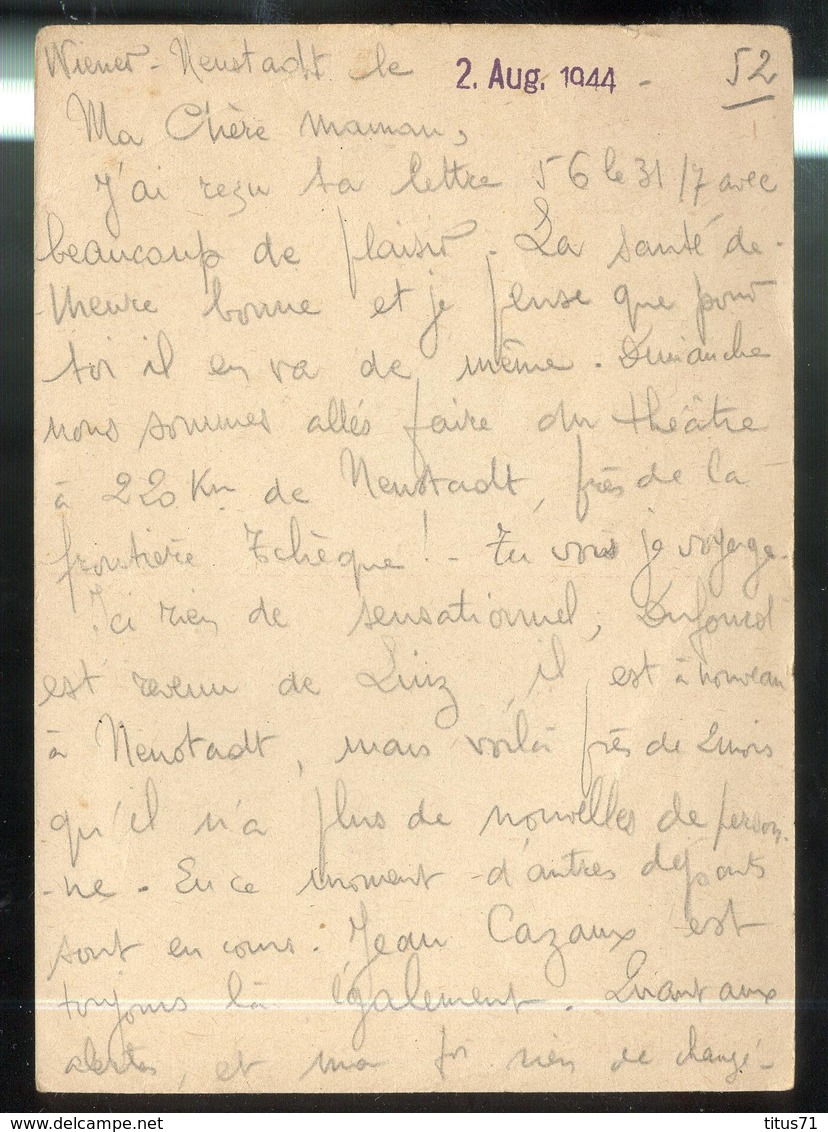 Wiener-Neustadt le 2. Aug. 1944 - 52
Ma Chère maman,
J'ai reçu ta lettre 56 le 31/7 avec
beaucoup de plaisir. La santé de-
-meure bonne et je pense que pour
toi il en va de même. Dimanche
nous sommes allés faire du théâtre
à 220 Km de Neustadt, près de la
frontière Tchèque! - Tu vois je voyage.
Ici rien de sensationnel, Dufourd
est revenu de Linz, il est à nouveau
à Neustadt, mais voilà près de 2 mois
qu'il n'a plus de nouvelles de person-
-ne. En ce moment d'autres départs
sont en cours. Jean Cazaux est
toujours là également. Quant aux
alertes, et ma foi rien de changé -
titus71